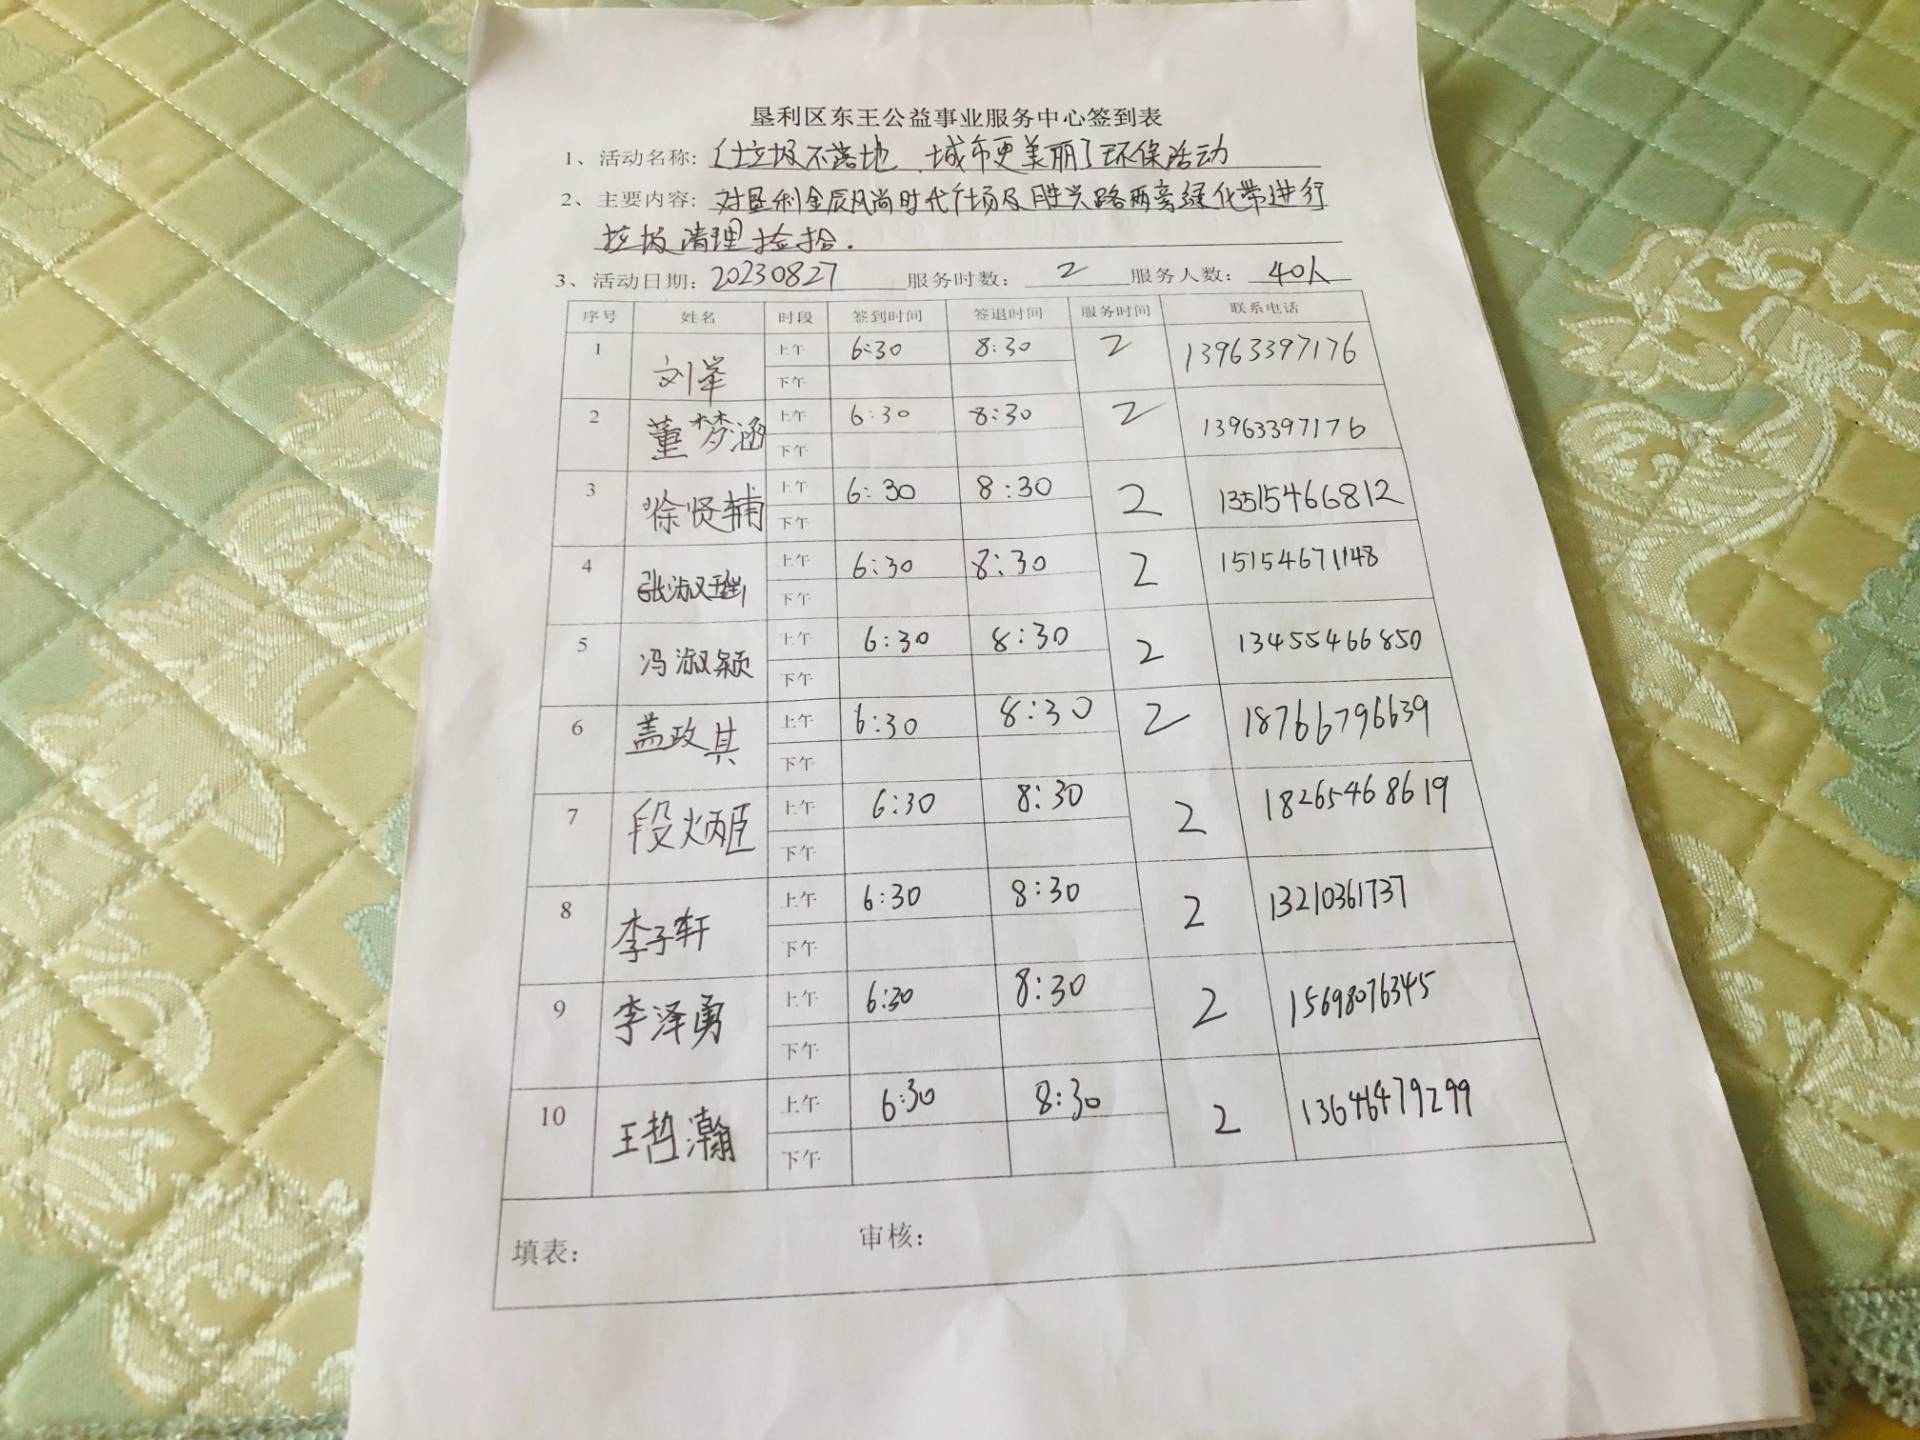 垦利区东王公益事业服务中心签到表
1、活动名称: “垃圾不落地、城市更美丽”环保活动
2、主要内容: 对垦利金辰风尚时代广场及胜兴路两旁绿化带进行
垃圾清理捡拾.
3、活动日期: 20230827 服务时数: 2 服务人数: 40人
序号 姓名 时段 签到时间 签退时间 服务时间 联系电话
1 刘举 上午 6:30 8:30 2 13963397176
下午
2 董梦涵 上午 6:30 8:30 2 13963397176
下午
3 徐贤辅 上午 6:30 8:30 2 13515466812
下午
4 张淑 上午 6:30 8:30 2 15154671148
下午
5 冯淑颖 上午 6:30 8:30 2 13455466850
下午
6 盖政其 上午 6:30 8:30 2 18766796639
下午
7 段炳臣 上午 6:30 8:30 2 18265468619
下午
8 李子轩 上午 6:30 8:30 2 13210361737
下午
9 李泽勇 上午 6:30 8:30 2 15698076345
下午
10 王哲瀚 上午 6:30 8:30 2 13646479299
下午
填表: 审核: